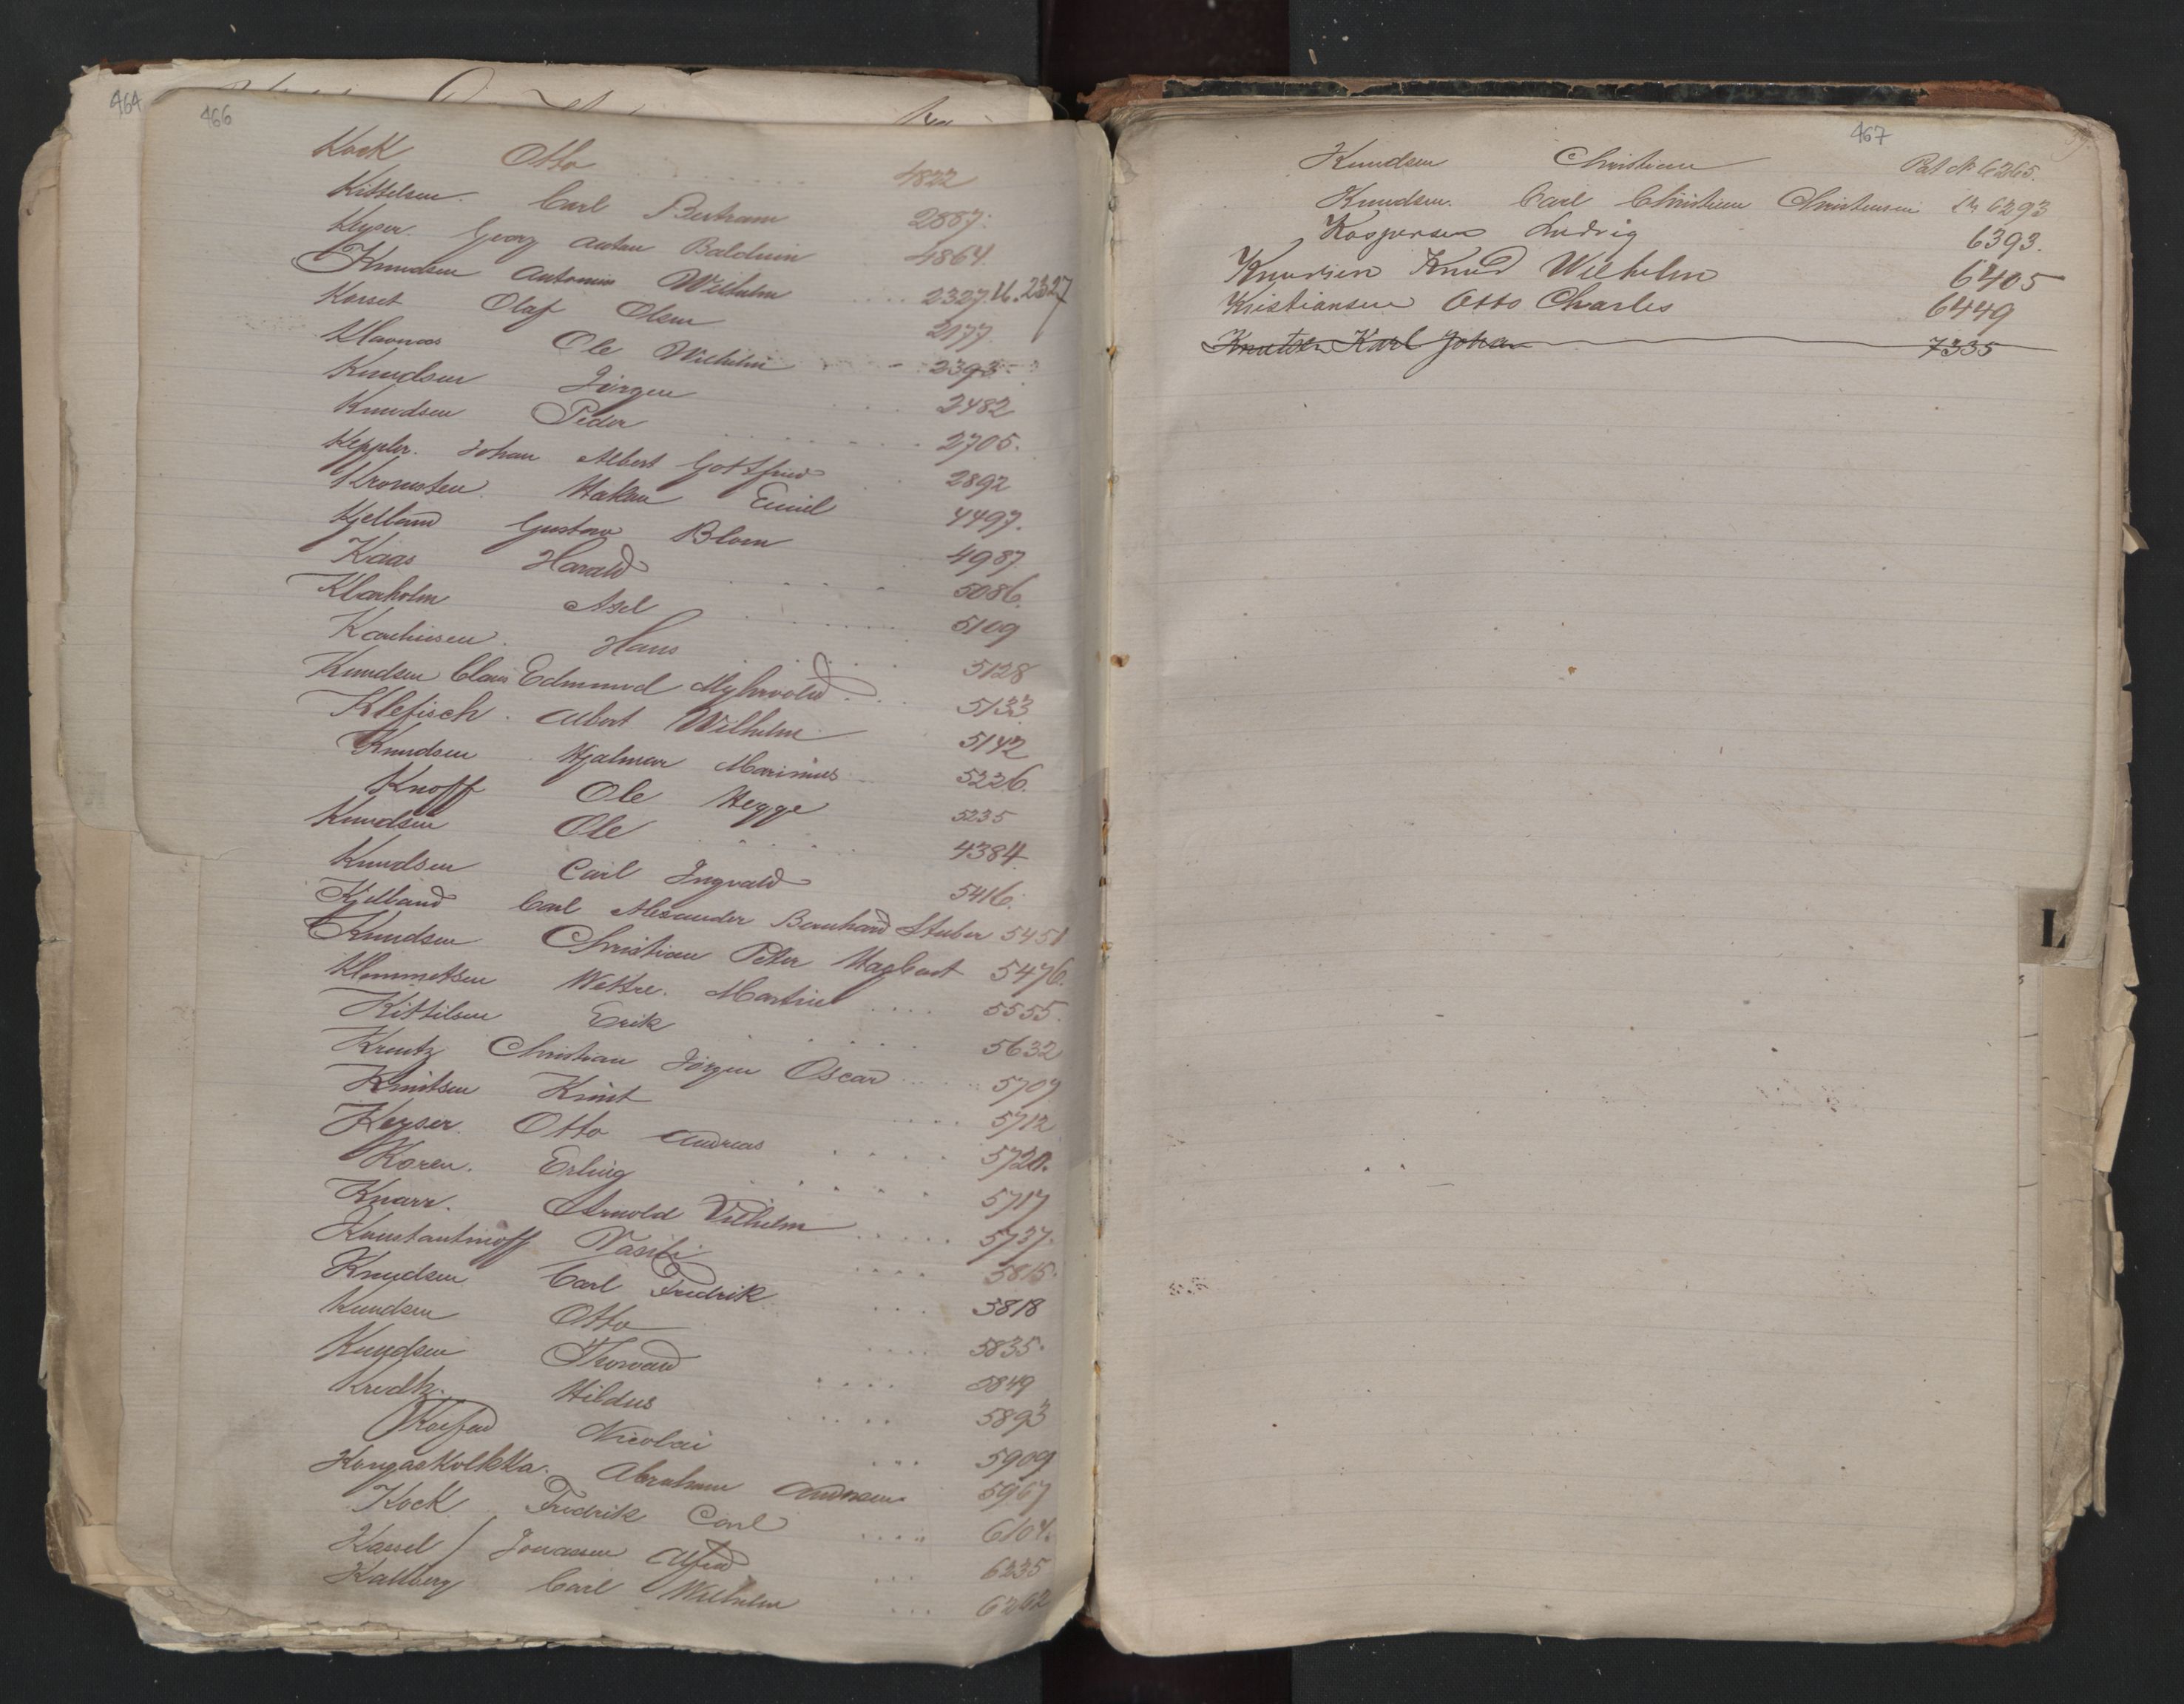 464
466
Kock Otto 4822
Kittelsen. Carl Bertram 2887.
Keyser. Georg Anton Balduin 4864
Knudsen Antonius Wilhelm 2327. U. 2327
Korset Olaf Olsen 2177
Klavnæs Ole Wilhelm 2393
Knudsen Jörgen 2482
Knudsen Peder 2705.
Keppler. Johan Albert Gottfried 2892
Kronsten. Hakan Emil 4497.
Kjelland Gustav Blom 4987
Kaas Harald 5086.
Klarholm Axel 5109
Hans 5128
Knudsen Claus Edmund Myhrvold 5133
Klefisch. Albert Wilhelm 5142
Knudsen Hjalmar Marinius 5226.
Knoff Ole Hegge 5235
Knudsen Ole 4384
Knudsen Carl Ingvald 5416.
Kjelland Carl Alexander Bernhard Stuber 5451
Knudsen Christian Peter Hagbart 5476.
Klemmetsen Wettre. Martin 5555.
Kittilsen Erik 5632
Kreutz Christian Jörgen Oscar 5707
Knutsen Knut 5712
Keyser. Otto Andreas 5720.
Koren. Erling 5717
Knarr. Arnold Vilhelm 5737.
Konstantinoff Vasili 5815.
Knudsen Carl Fredrik 5818
Knudsen Otto 5835.
Knudsen Thorvald 5849
Hildus 5893
Nicolai 5909
Kangaskolkka. Abraham Andersen 5967
Kock Fredrik Carl 6104.
Kassel / Jonassen Alfred 6235
Kallberg Carl Wilhelm 6262
467
Knudsen Christian Pat № 6265.
Knudsen. Carl Christian Christensen 6293
Kaspersen Ludvig 6393.
Knudsen Knud Wilhelm 6405
Kristiansen Otto Charles 6449
Knutsen Karl Johan 7335
L